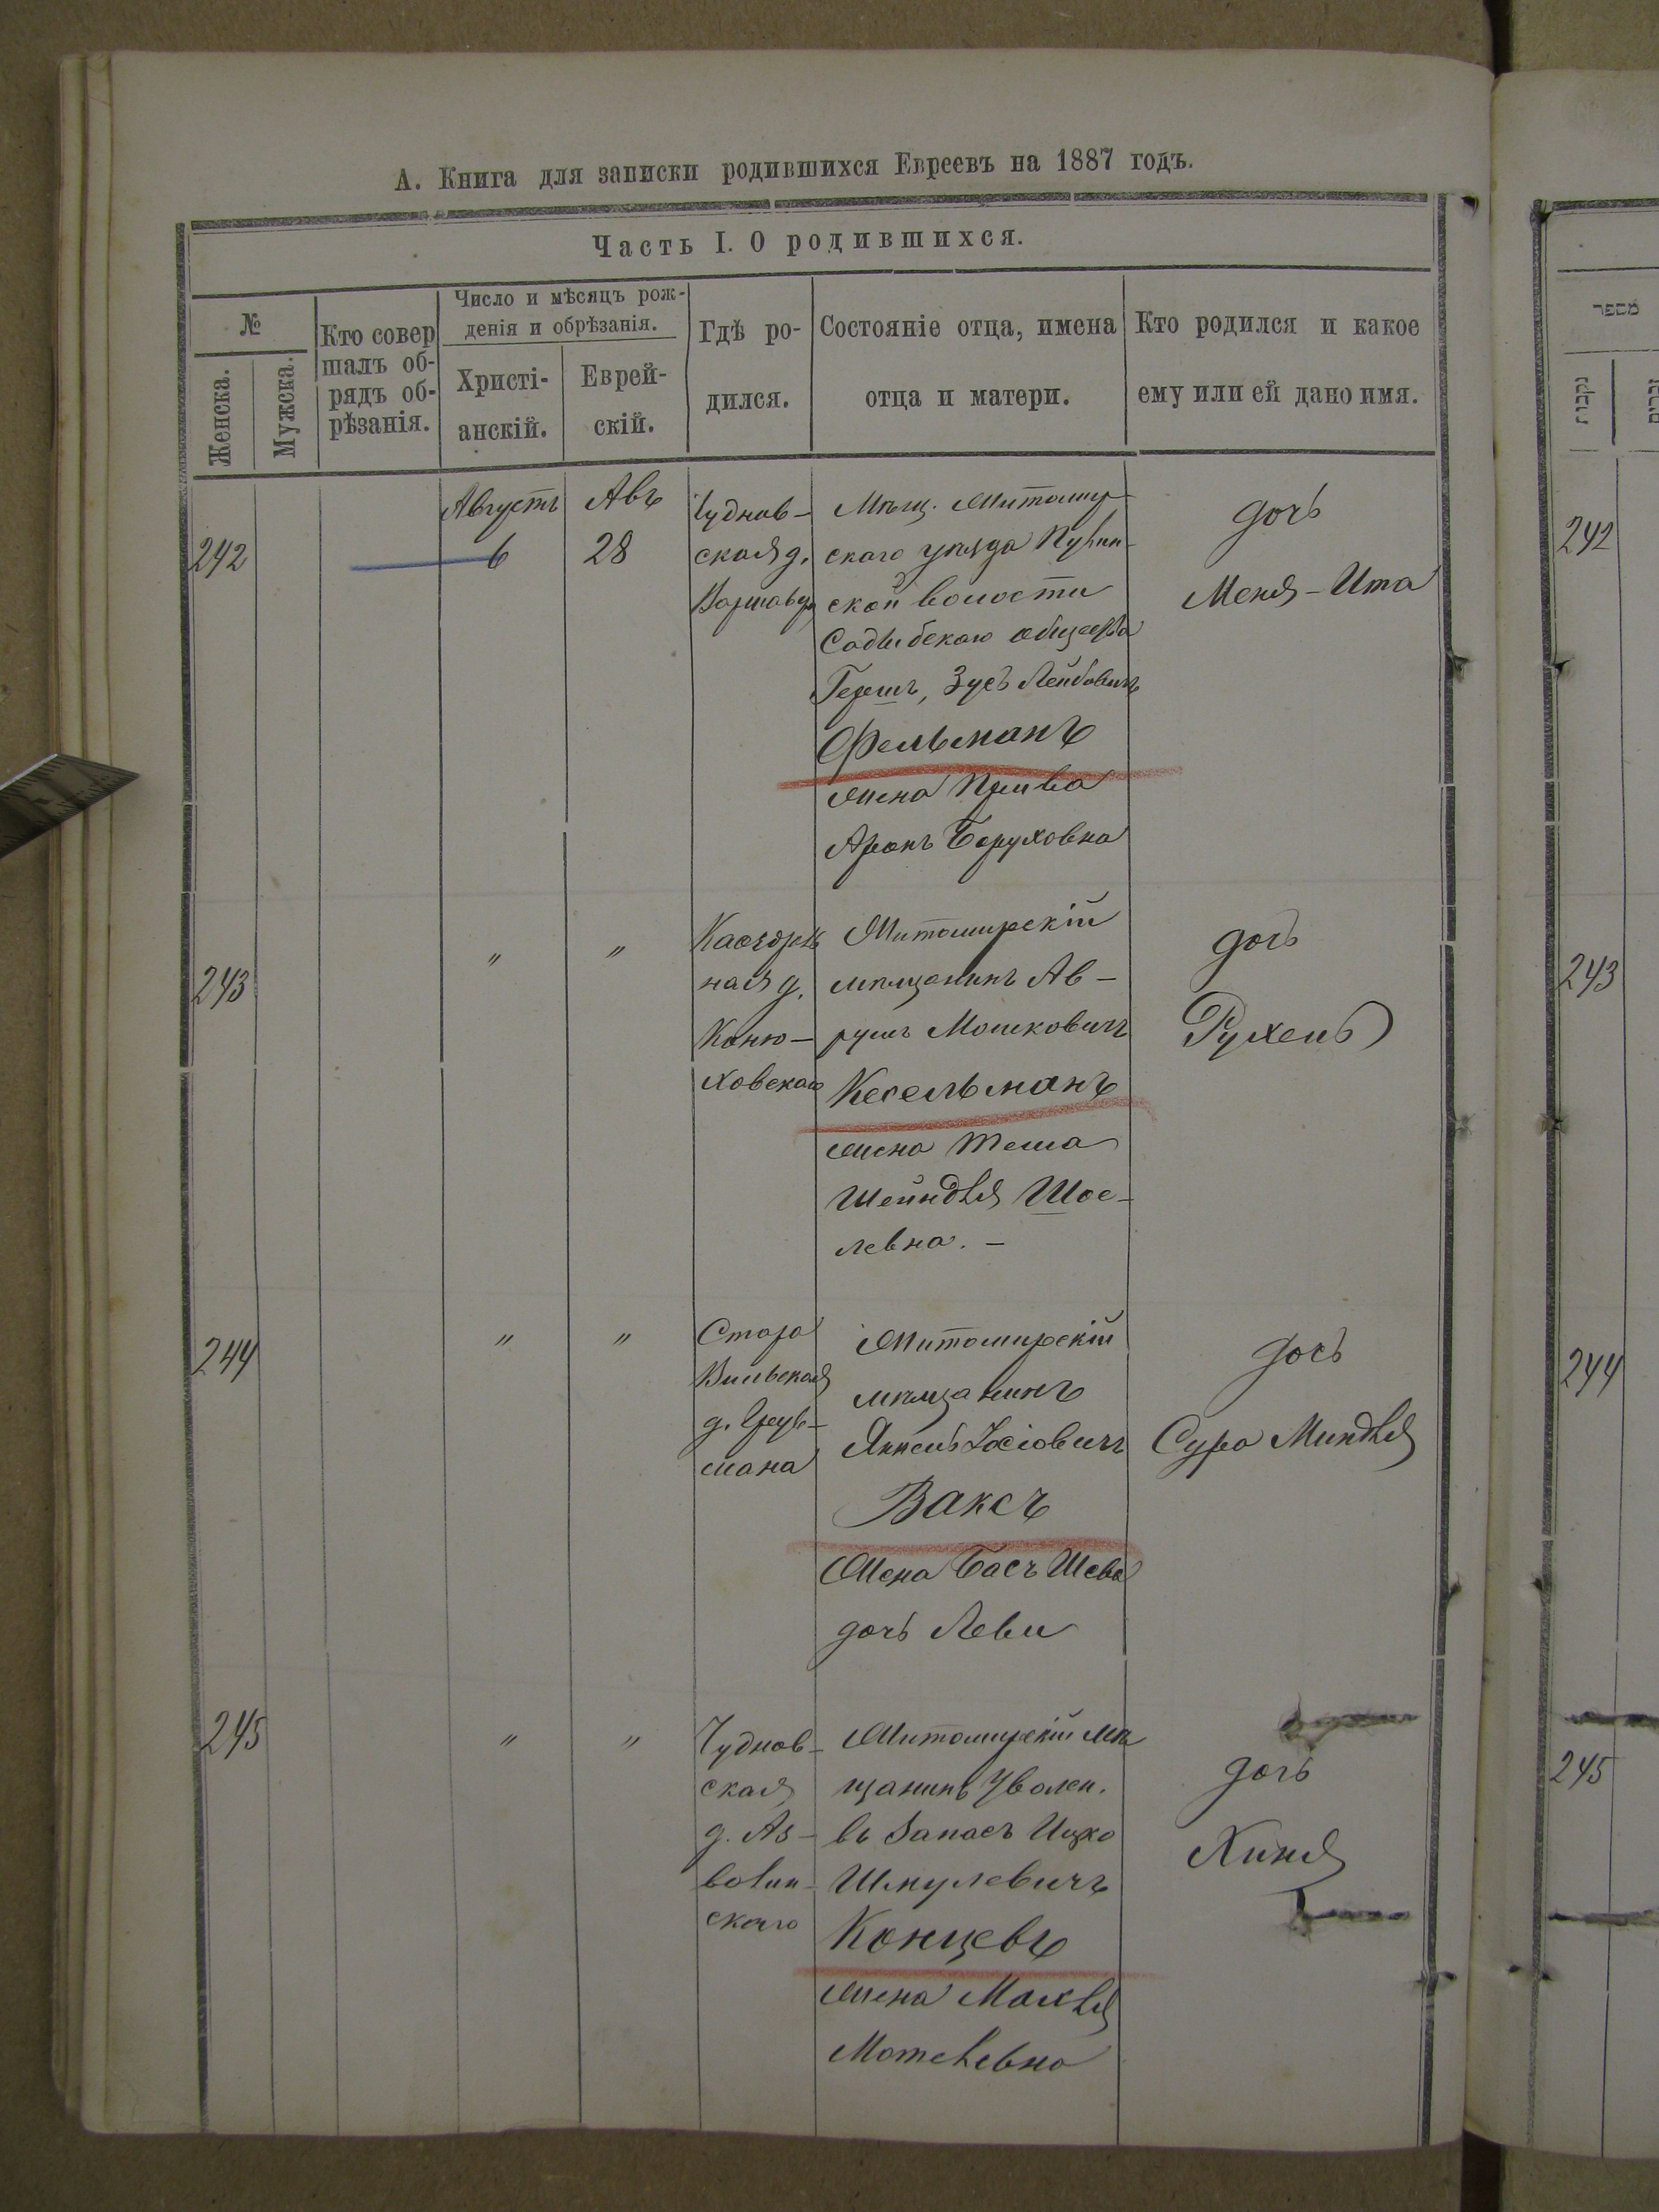 А. Книга для записки родившихся Евреевъ на 1887 годъ.
Часть I. О родившихся.
№
Женска.
Мужска.
Кто совер
шалъ об-
рядъ об-
рѣзанія.
Число и мѣсяцъ рож-
денія и обрѣзанія.
Христі-
анскій.
Еврей-
скій.
Гдѣ ро-
дился.
Состояніе отца, имена
отца и матери.
Кто родился и какое
ему или ей дано имя.
מספר
נקבות
זכרים
242
Августъ
6
Авъ
28
Чуднов-
ская д.
Мѣщ. Житомир-
скаго уѣзда Пулин-
ской волости
общества
Гершъ, Зусь Лейбовичъ
Фельманъ
жена Прива
Аронъ Боруховна
дочь
Меня-Ита
242
243
"
"
ная д.
Коню-
ховскаго
Житомирскій
мѣщанинъ Ав-
румъ Мошковичъ
Кесельманъ
жена Теша
Шейндля Шое-
левна. -
дочь
Рухель
243
244
"
"
Старо
Вильская
д.
мана
Житомирскій
мѣщанинъ
Янкель Іосіовичъ
Ваксъ
Жена Басъ Шева
дочь Леви
дочь
Сура Миндля
244
245
"
"
Чуднов-
ская
д. Аз-
волин-
скаго
Житомирскій мѣ
щанинъ уволен.
въ запасъ Ицко
Шмулевичъ
Концевъ
жена Малля
Мотелевна
дочь
Хиня
245